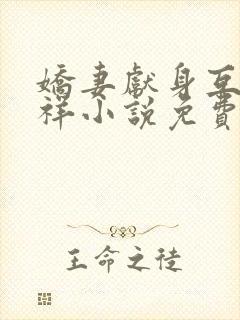 嬌妻獻身互
祥小說免費
王命之徒